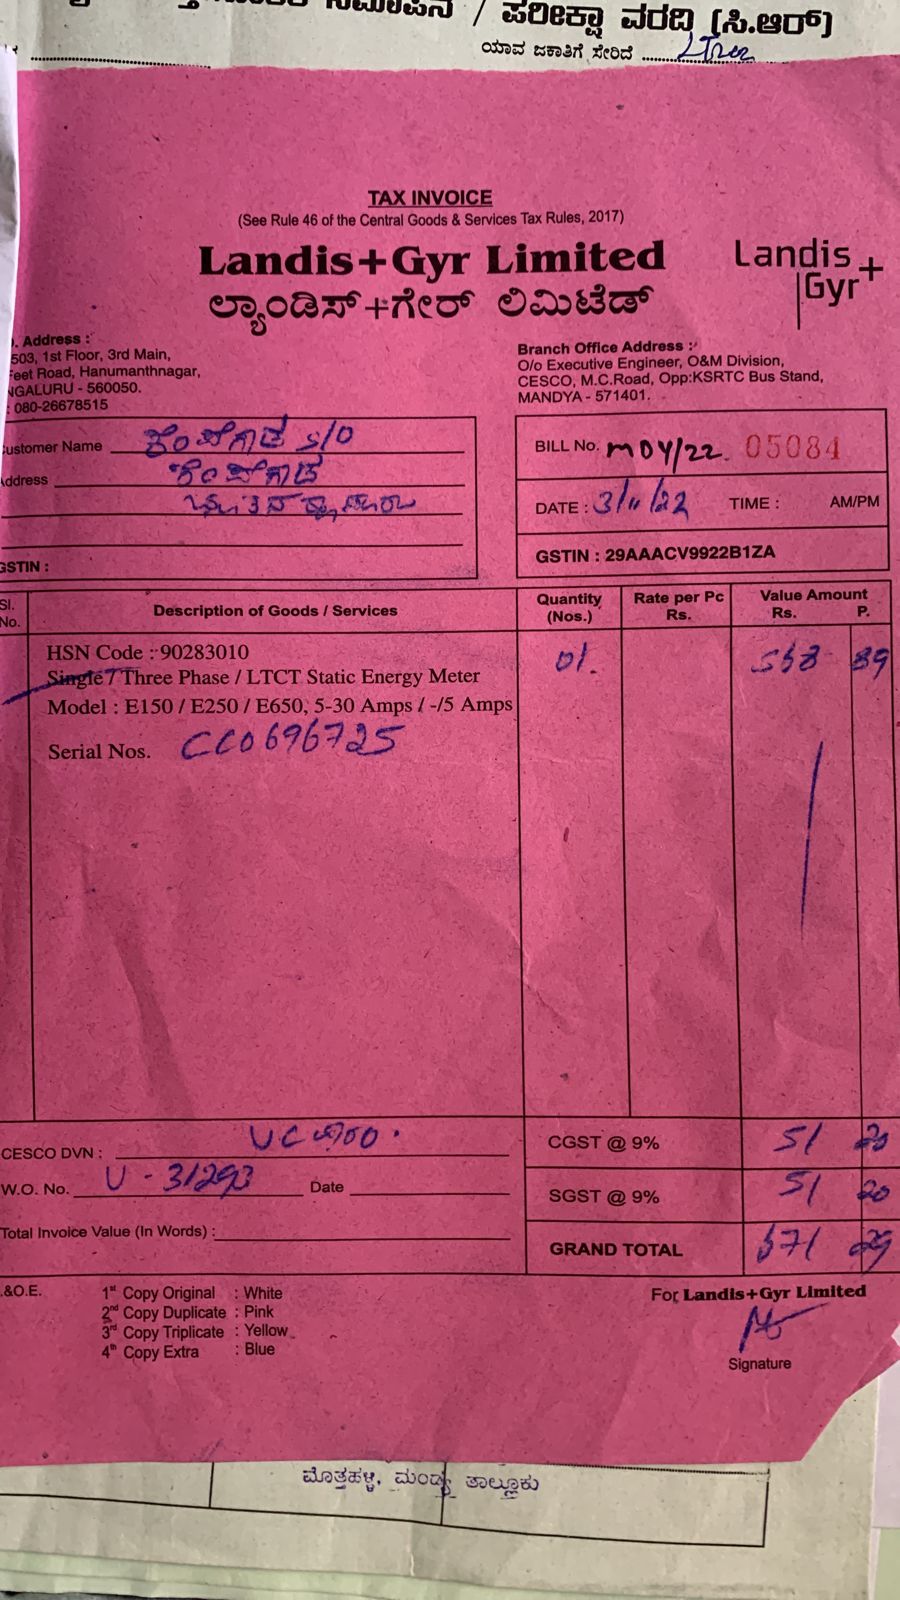 ಸಮಾಪನ / ಪರೀಕ್ಷಾ ವರದಿ (ಸಿ.ಆರ್)
ಯಾವ ಜಕಾತಿಗೆ ಸೇರಿದೆ
TAX INVOICE
(See Rule 46 of the Central Goods & Services Tax Rules, 2017)
Landis+Gyr Limited
Landis
Gyr+
ಲ್ಯಾಂಡಿಸ್+ಗೇರ್ ಲಿಮಿಟೆಡ್
. Address :
503, 1st Floor, 3rd Main,
eet Road, Hanumanthnagar,
NGALURU - 560050.
: 080-26678515
Branch Office Address :
O/o Executive Engineer, O&M Division,
CESCO, M.C.Road, Opp:KSRTC Bus Stand,
MANDYA - 571401.
ustomer Name ಕೆಂಪೇಗೌಡ S/O
ddress ಕೆಂಪೇಗೌಡ
GSTIN :
BILL No. MDY/22. 05084
DATE : 3/11/22 TIME : AM/PM
GSTIN : 29AAACV9922B1ZA
Sl. No. Description of Goods / Services Quantity (Nos.) Rate per Pc Rs. Value Amount Rs. P.
HSN Code : 90283010 01. 568 89
Single / Three Phase / LTCT Static Energy Meter
Model : E150 / E250 / E650, 5-30 Amps / -/5 Amps
Serial Nos. CC0696725
CESCO DVN :
W.O. No. U - 31293 Date
Total Invoice Value (In Words) :
CGST @ 9% 51 20
SGST @ 9% 51 20
GRAND TOTAL 671 29
.&O.E.
1st Copy Original : White
2nd Copy Duplicate : Pink
3rd Copy Triplicate : Yellow
4th Copy Extra : Blue
For Landis+Gyr Limited
Signature
ಮೊತ್ತಹಳ್ಳಿ, ಮಂಡ್ಯ ತಾಲ್ಲೂಕು